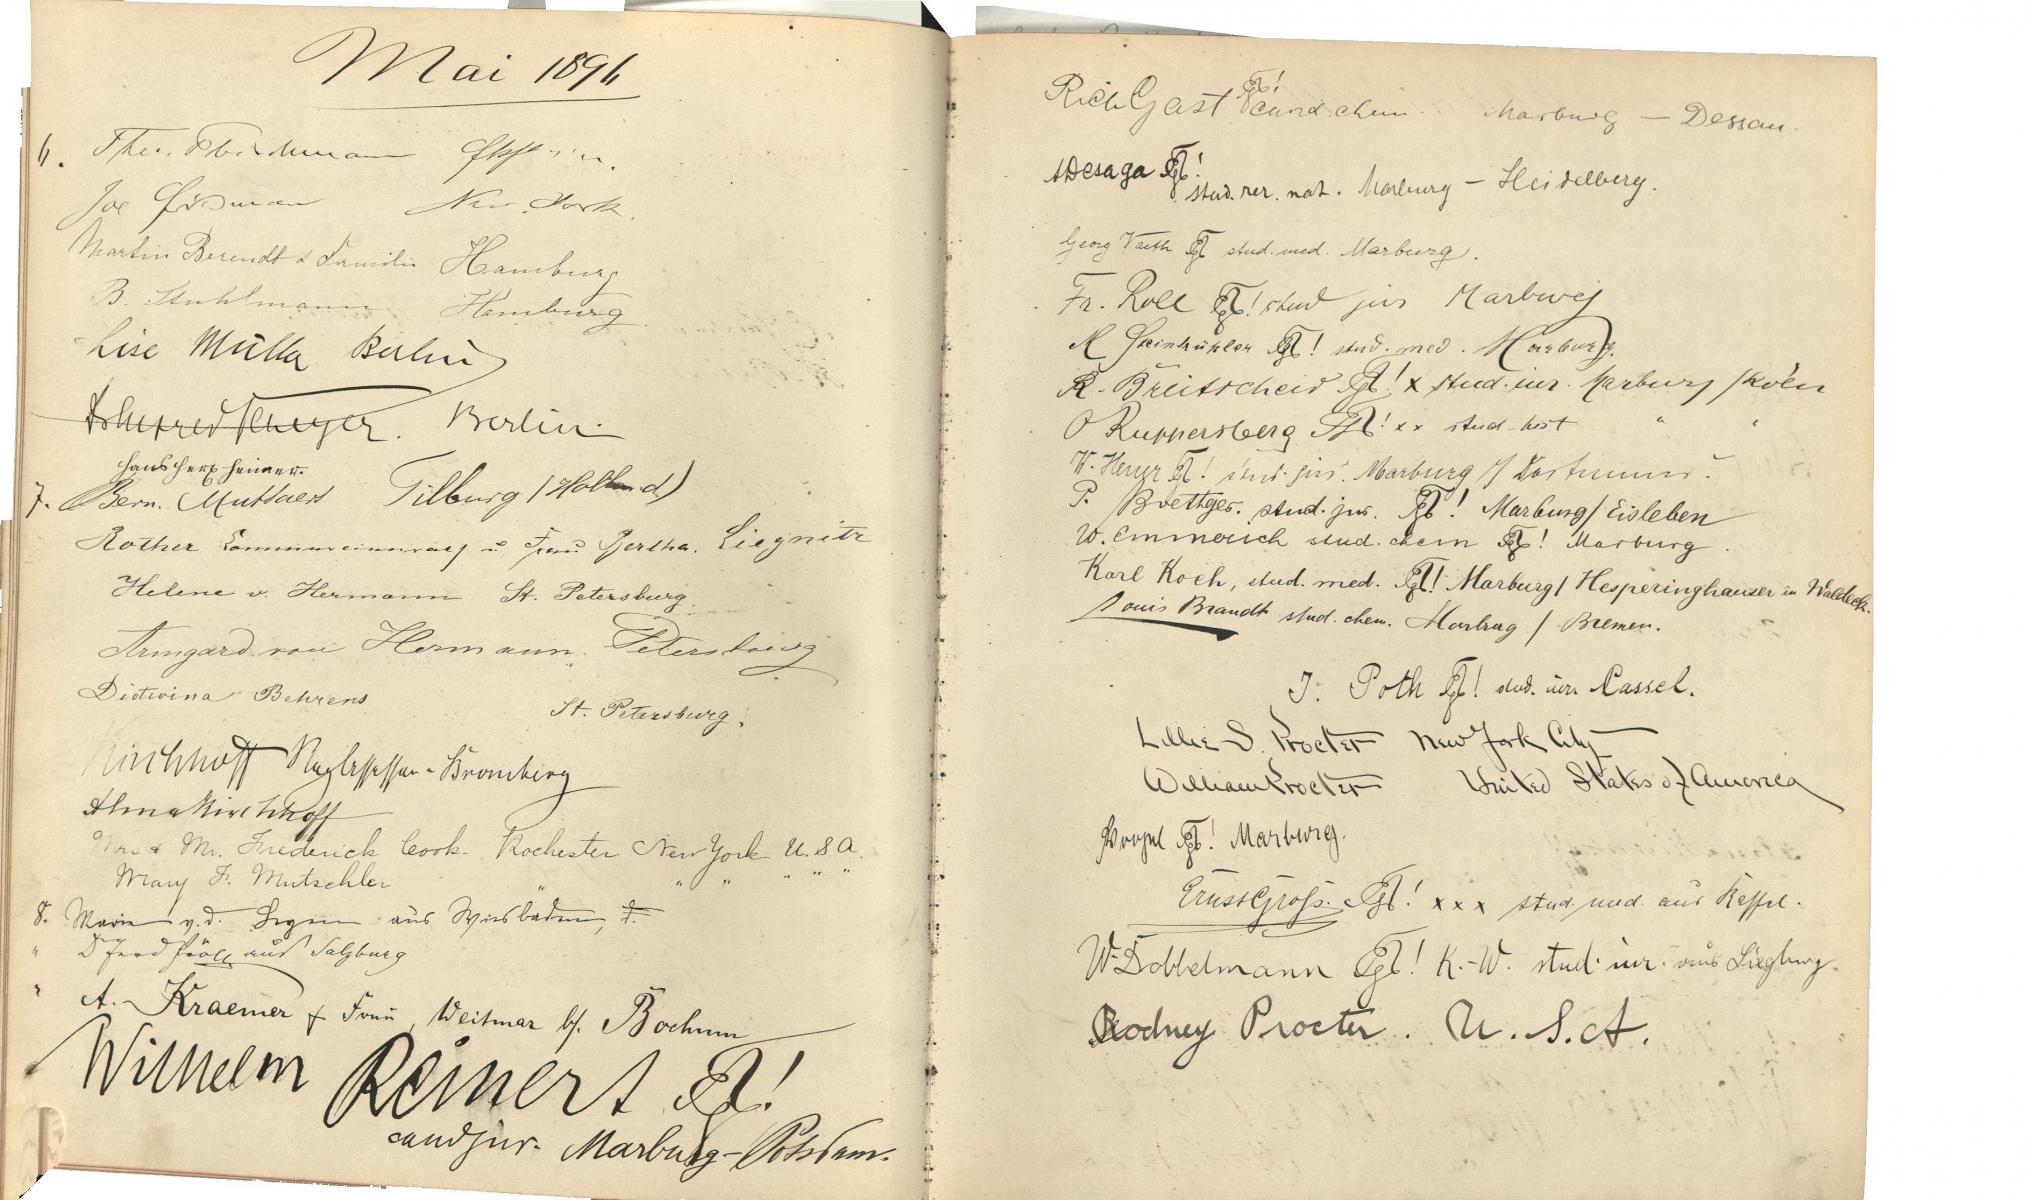 Mai 1896
6.
Joe New York.
Martin Berendt & Familie Hamburg
B. Stuhlmann Hamburg
Lise Müller Berlin
Berlin.
Hans Herxheimer.
7. Bern. Mutsaers Tilburg (Holland)
Rother u Frau Bertha. Liegnitz
Helene v. Hermann St. Petersburg.
Armgard von Hermann. Petersburg
Behrens St. Petersburg.
Kirchhoff Bromberg
Alma Kirchhoff
Mrs & Mr. Frederick Cook - Rochester New York U. S. A.
Mary F. Mutschler " " " " " "
8. Marie v. d. aus Wiesbaden,
" D Ferd Pröll aus Salzburg
" A. Kraemer & Frau, Weitmar b/. Bochum
Wilhelm Reinert !
cand jur. Marburg - Potsdam.
Rich Gast ! cand. chem. Marburg — Dessau.
A Desaga !
stud. rer. nat. Marburg — Heidelberg.
Georg Vaeth stud. med. Marburg.
Fr. Roll ! stud jur Marburg
! stud. med. Marburg.
R. Breitscheid ! x stud. iur. Marburg / Köln
O Ruppersberg ! xx stud. hist " "
W. ! stud. jur. Marburg / Dortmund.
P. Boettger. stud. jur. ! Marburg / Eisleben
W. Emmerich stud. chem ! Marburg.
Karl Koch, stud. med. ! Marburg / Hesperinghausen in Waldeck.
Louis Brandt stud. chem. Marburg / Bremen.
J. Poth ! stud. iur. Cassel.
Lillie S. Procter New York City
William Procter United States of America
! Marburg.
Ernst Groß. ! xxx stud med. aus Kassel.
W. Dobbelmann ! K.-W. stud. iur. aus Siegburg.
Rodney Procter. U. S. A.